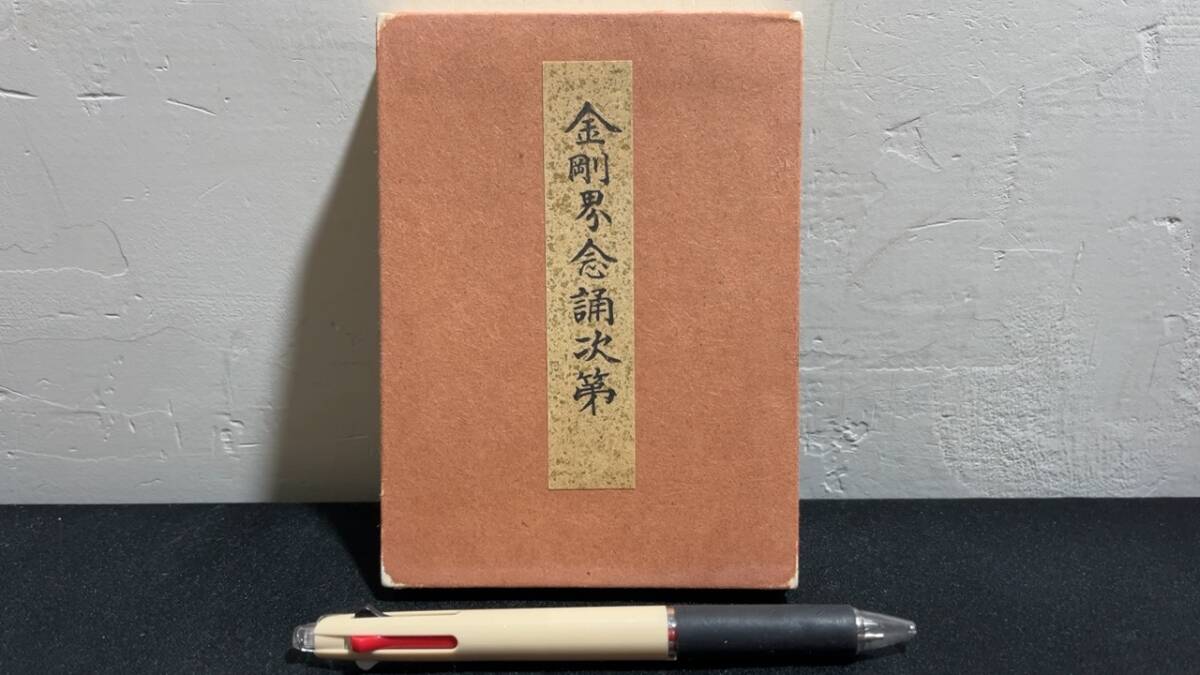 金剛界念誦次第